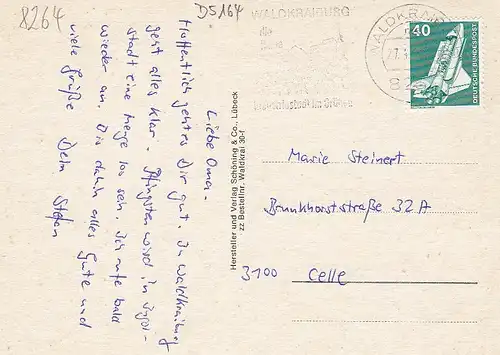 8264
D5164
WALDKRAIBURG
die
im Grünen
WALDKRAI
82
40
DEUTSCHE BUNDESPOST
Liebe Oma.
Hoffentlich geht es Dir gut. In Waldkraiburg
geht alles klar. Pfingsten wird in
stadt eine Menge los sein. Ich rufe bald
wieder an. Bis dahin alles Gute und
viele Grüße Dein Stefan
Hersteller und Verlag Schöning & Co., Lübeck
zz Bestellnr. Waldkrai 30-f
Marie Steinert
Brunkhorststraße 32A
3100 Celle